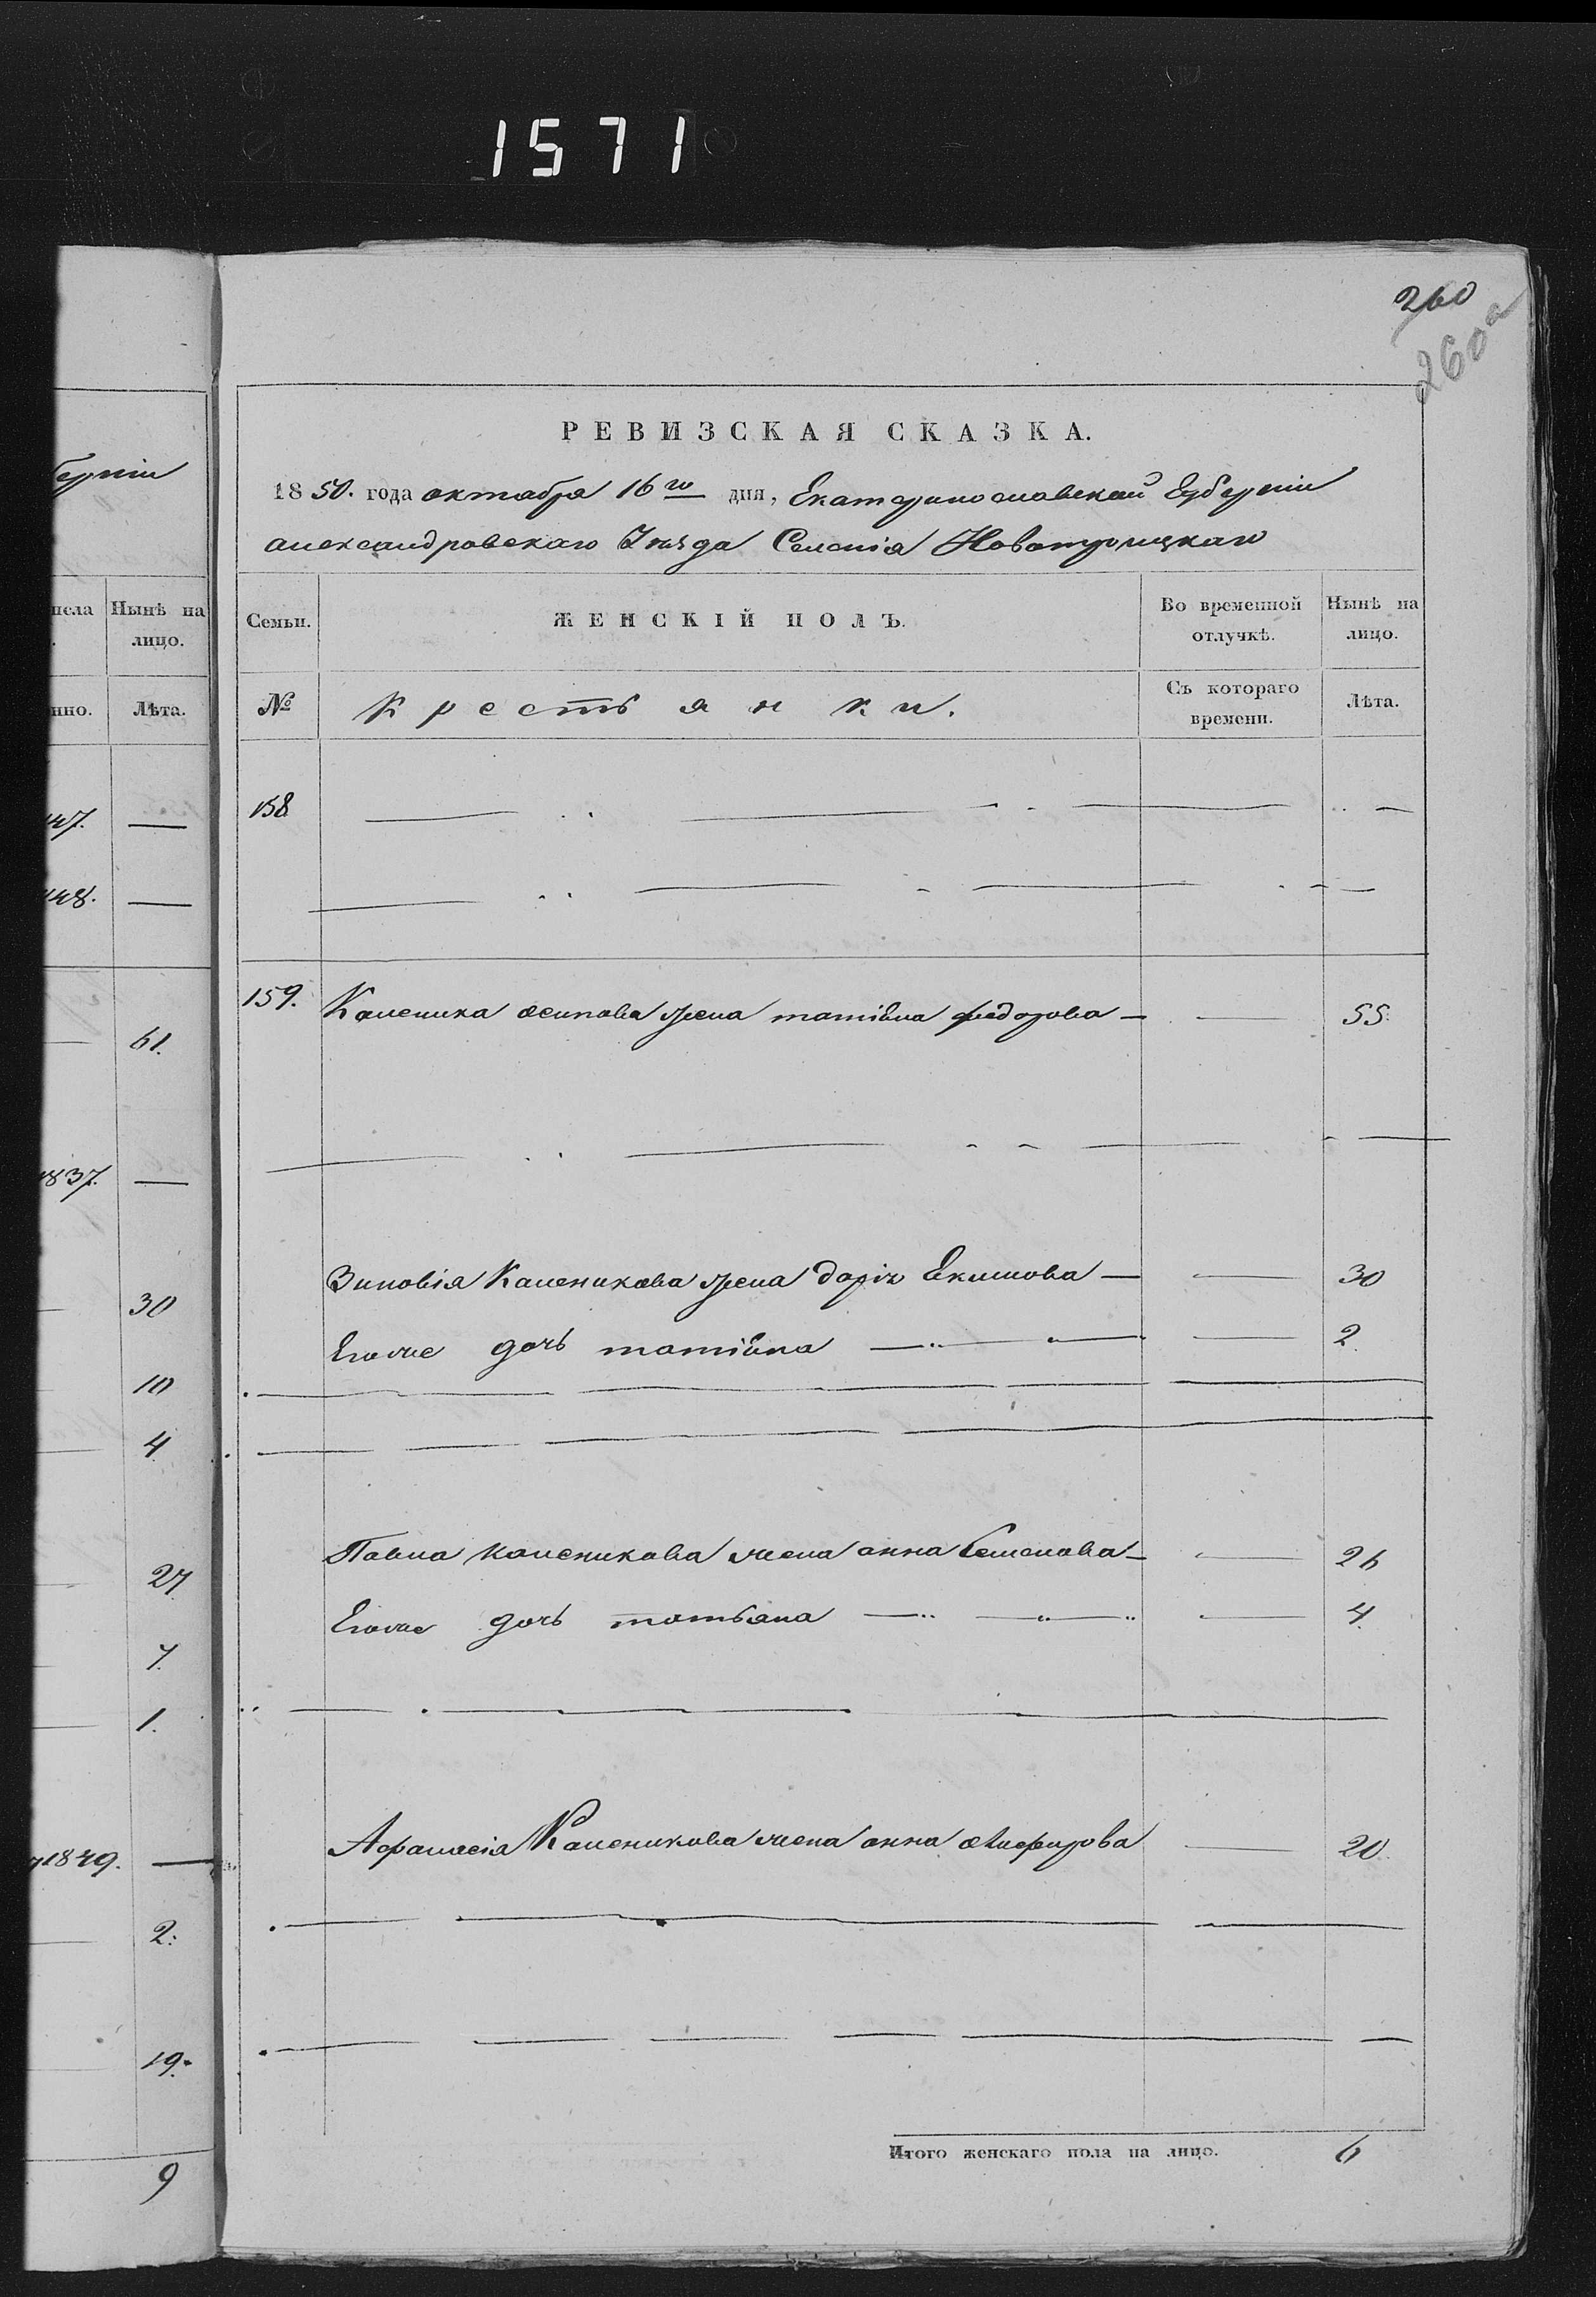 1571
260
260а
РЕВИЗСКАЯ СКАЗКА.
1850. года октября 16го дня, Екатеринославской Губерніи
александровскаго Уѣзда Селенія Новотроицкаго
Семьи.
ЖЕНСКІЙ ПОЛЪ.
Во временной отлучкѣ.
Нынѣ на лицо.
№
Крестьянки.
Съ котораго времени.
Лѣта.
158
159. Каленика осипова жена татіяна федорова — — 55.
Зиновія Каленикова жена даріа Екимова — — 30
Еговже дочь татіяна — — 2.
Павла каленикова жена анна Семенова — — 26
Еговже дочь татьяна — — 4.
Афанасія Каленикова жена анна — 20.
Итого женскаго пола на лицо. 6
берніи
Нынѣ на лицо.
нно. Лѣта.
47. —
48. —
61.
1837. —
30
10
4
27
7.
1.
1849. —
2.
19.
9